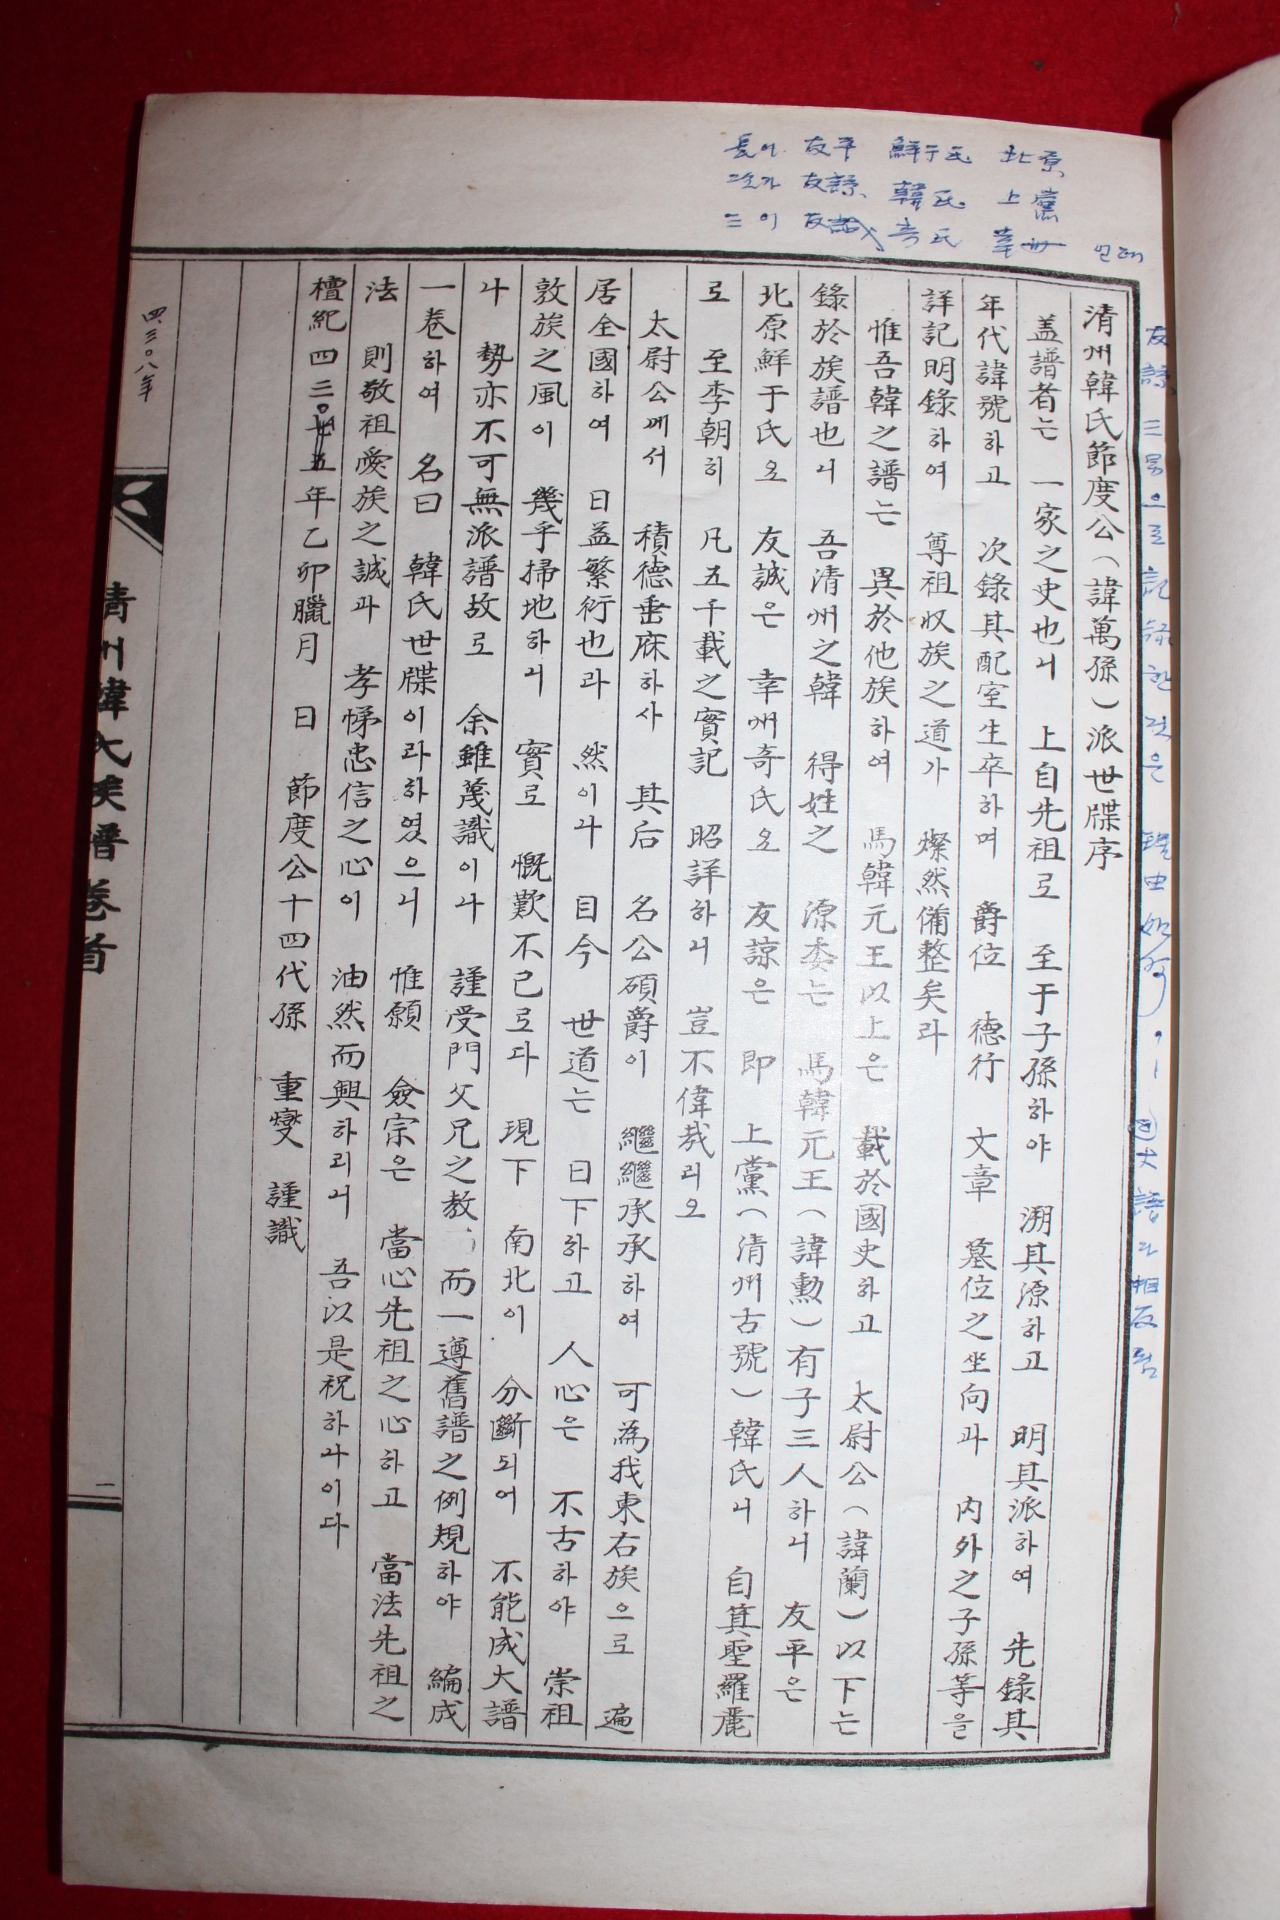 清州韓氏節度公（諱萬孫）派世牒序
盖譜者는 一家之史也니 上自先祖로 至于子孫하야 溯其源하고 明其派하여 先錄其
年代諱號하고 次錄其配室生卒하며 爵位 德行 文章 墓位之坐向과 内外之子孫等을
詳記明錄하여 尊祖收族之道가 燦然備整矣라
惟吾韓之譜는 異於他族하여 馬韓元王以上은 載於國史하고 太尉公（諱蘭）以下는
錄於族譜也니 吾清州之韓 得姓之 源委는 馬韓元王（諱勲）有子三人하니 友平은
北原鮮于氏오 友誠은 幸州奇氏오 友諒은 即 上黨（清州古號）韓氏니 自箕聖羅麗
로 至李朝히 凡五千載之實記 昭詳하니 豈不偉哉리오
太尉公께서 積德垂庥하사 其后 名公碩爵이 繼繼承承하여 可為我東右族으로 遍
居全國하여 日益繁衍也라 然이나 目今 世道는 日下하고 人心은 不古하야 崇祖
敦族之風이 幾乎掃地하니 實로 慨歎不已로다 現下 南北이 分斷되어 不能成大譜
나 勢亦不可無派譜故로 余雖蔑識이나 謹受門父兄之教 而一遵舊譜之例規하야 編成
一卷하여 名曰 韓氏世牒이라하였으니 惟願 僉宗은 當心先祖之心하고 當法先祖之
法 則敬祖愛族之誠과 孝悌忠信之心이 油然而興하리니 吾以是祝하나이다
檀紀四三○五年乙卯臘月 日 節度公十四代孫 重燮 謹識
四三○八年
清州韓氏族譜 卷首
一
友平 鮮于氏 北原
友諒 韓氏 上黨
友誠 奇氏 幸州
友諒 三男으로 記錄한 것은 理由如何